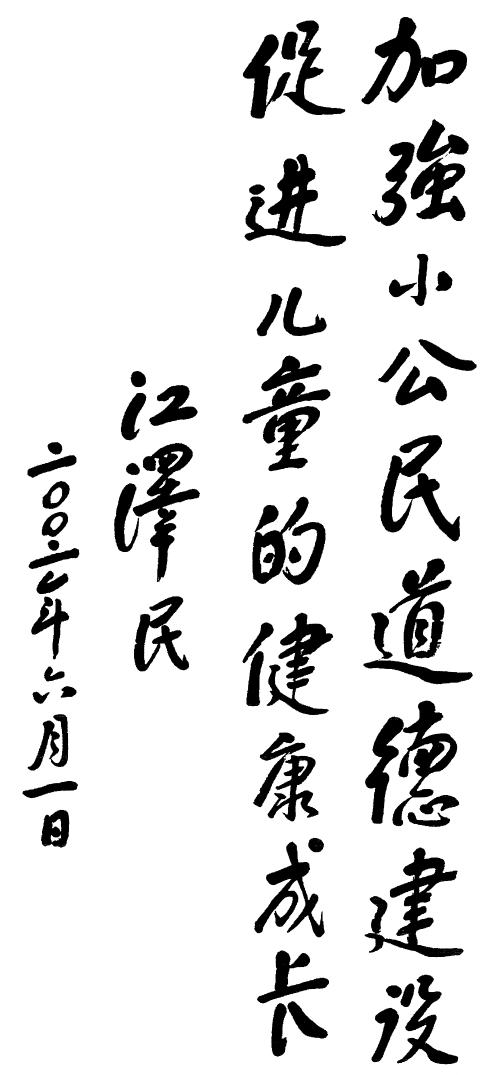 加強小公民道德建设
促进儿童的健康成长
江澤民
二〇〇二年六月一日